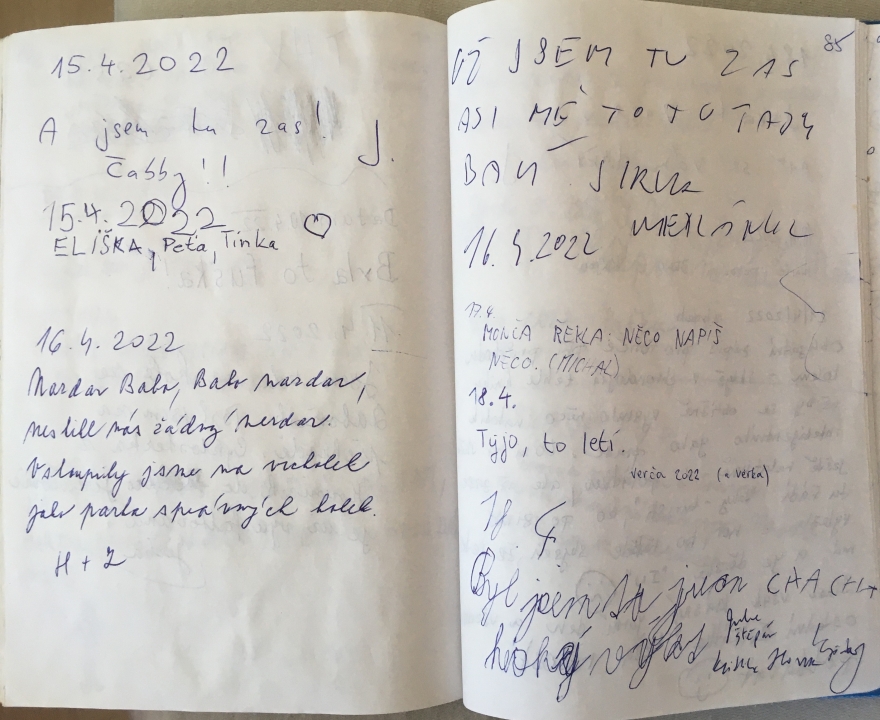 15.4.2022
A jsem tu zas!
J.
Čabby!!
15.4.2022
ELIŠKA, Peťa, Tinka
16.4.2022
Nazdar Babo, Babo nazdar,
nestihl nás žádný nezdar.
Vstoupily jsme na vrcholek
jako parta správných holek.
H + Z
85
UŽ JSEM TU ZAS
ASI MĚ TO TU TADY
BAVÍ
16.4.2022
17.4.
MONČA ŘEKLA: NĚCO NAPIŠ
NĚCO. (MICHAL)
18.4.
Týjo, to letí.
verča 2022 (a verka)
Byl jsem tu CHA CHA
hezký